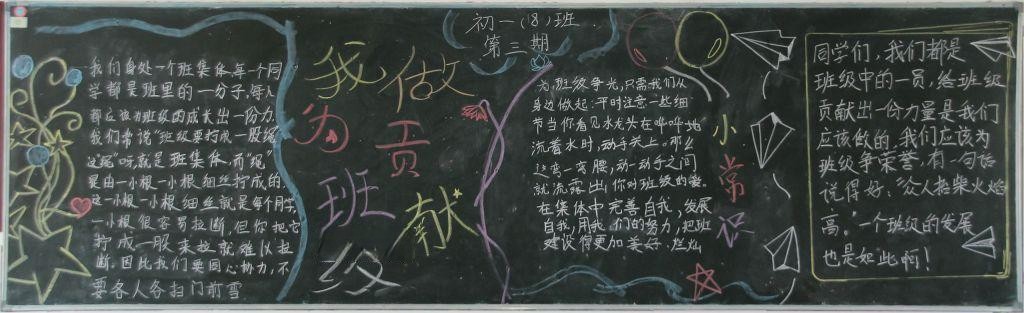 初一(8)班
第二期
我们身处一个班集体,每一个同
学都是班里的一分子,每人
都应该为班级的成长出一份力.
我们常说"班级要拧成一股绳"
这绳呀,就是班集体,而"绳"
是由一小根一小根细丝拧成的.
这一小根一小根细丝就是每个同学,
一小根很容易拉断,但你把它
拧成一股来拉就难以拉
断.因此我们要同心协力,不
要各人各扫门前雪
我为班级
做贡献
为班级争光,只需我们从
身边做起:平时注意一些细
节当你看见水龙头在哗哗地
流着水时,动手关上。那么
这弯一弯腰,动一动手之间
就流露出,你对班级的爱。
在集体中完善自我,发展
自我,用我们的努力,把班
建设得更加美好.灿烂
小常识
同学们,我们都是
班级中的一员,给班级
贡献出一份力量是我们
应该做的.我们应该为
班级争荣誉.有一句话
说得好、"众人拾柴火焰
高。"一个班级的发展
也是如此啊!